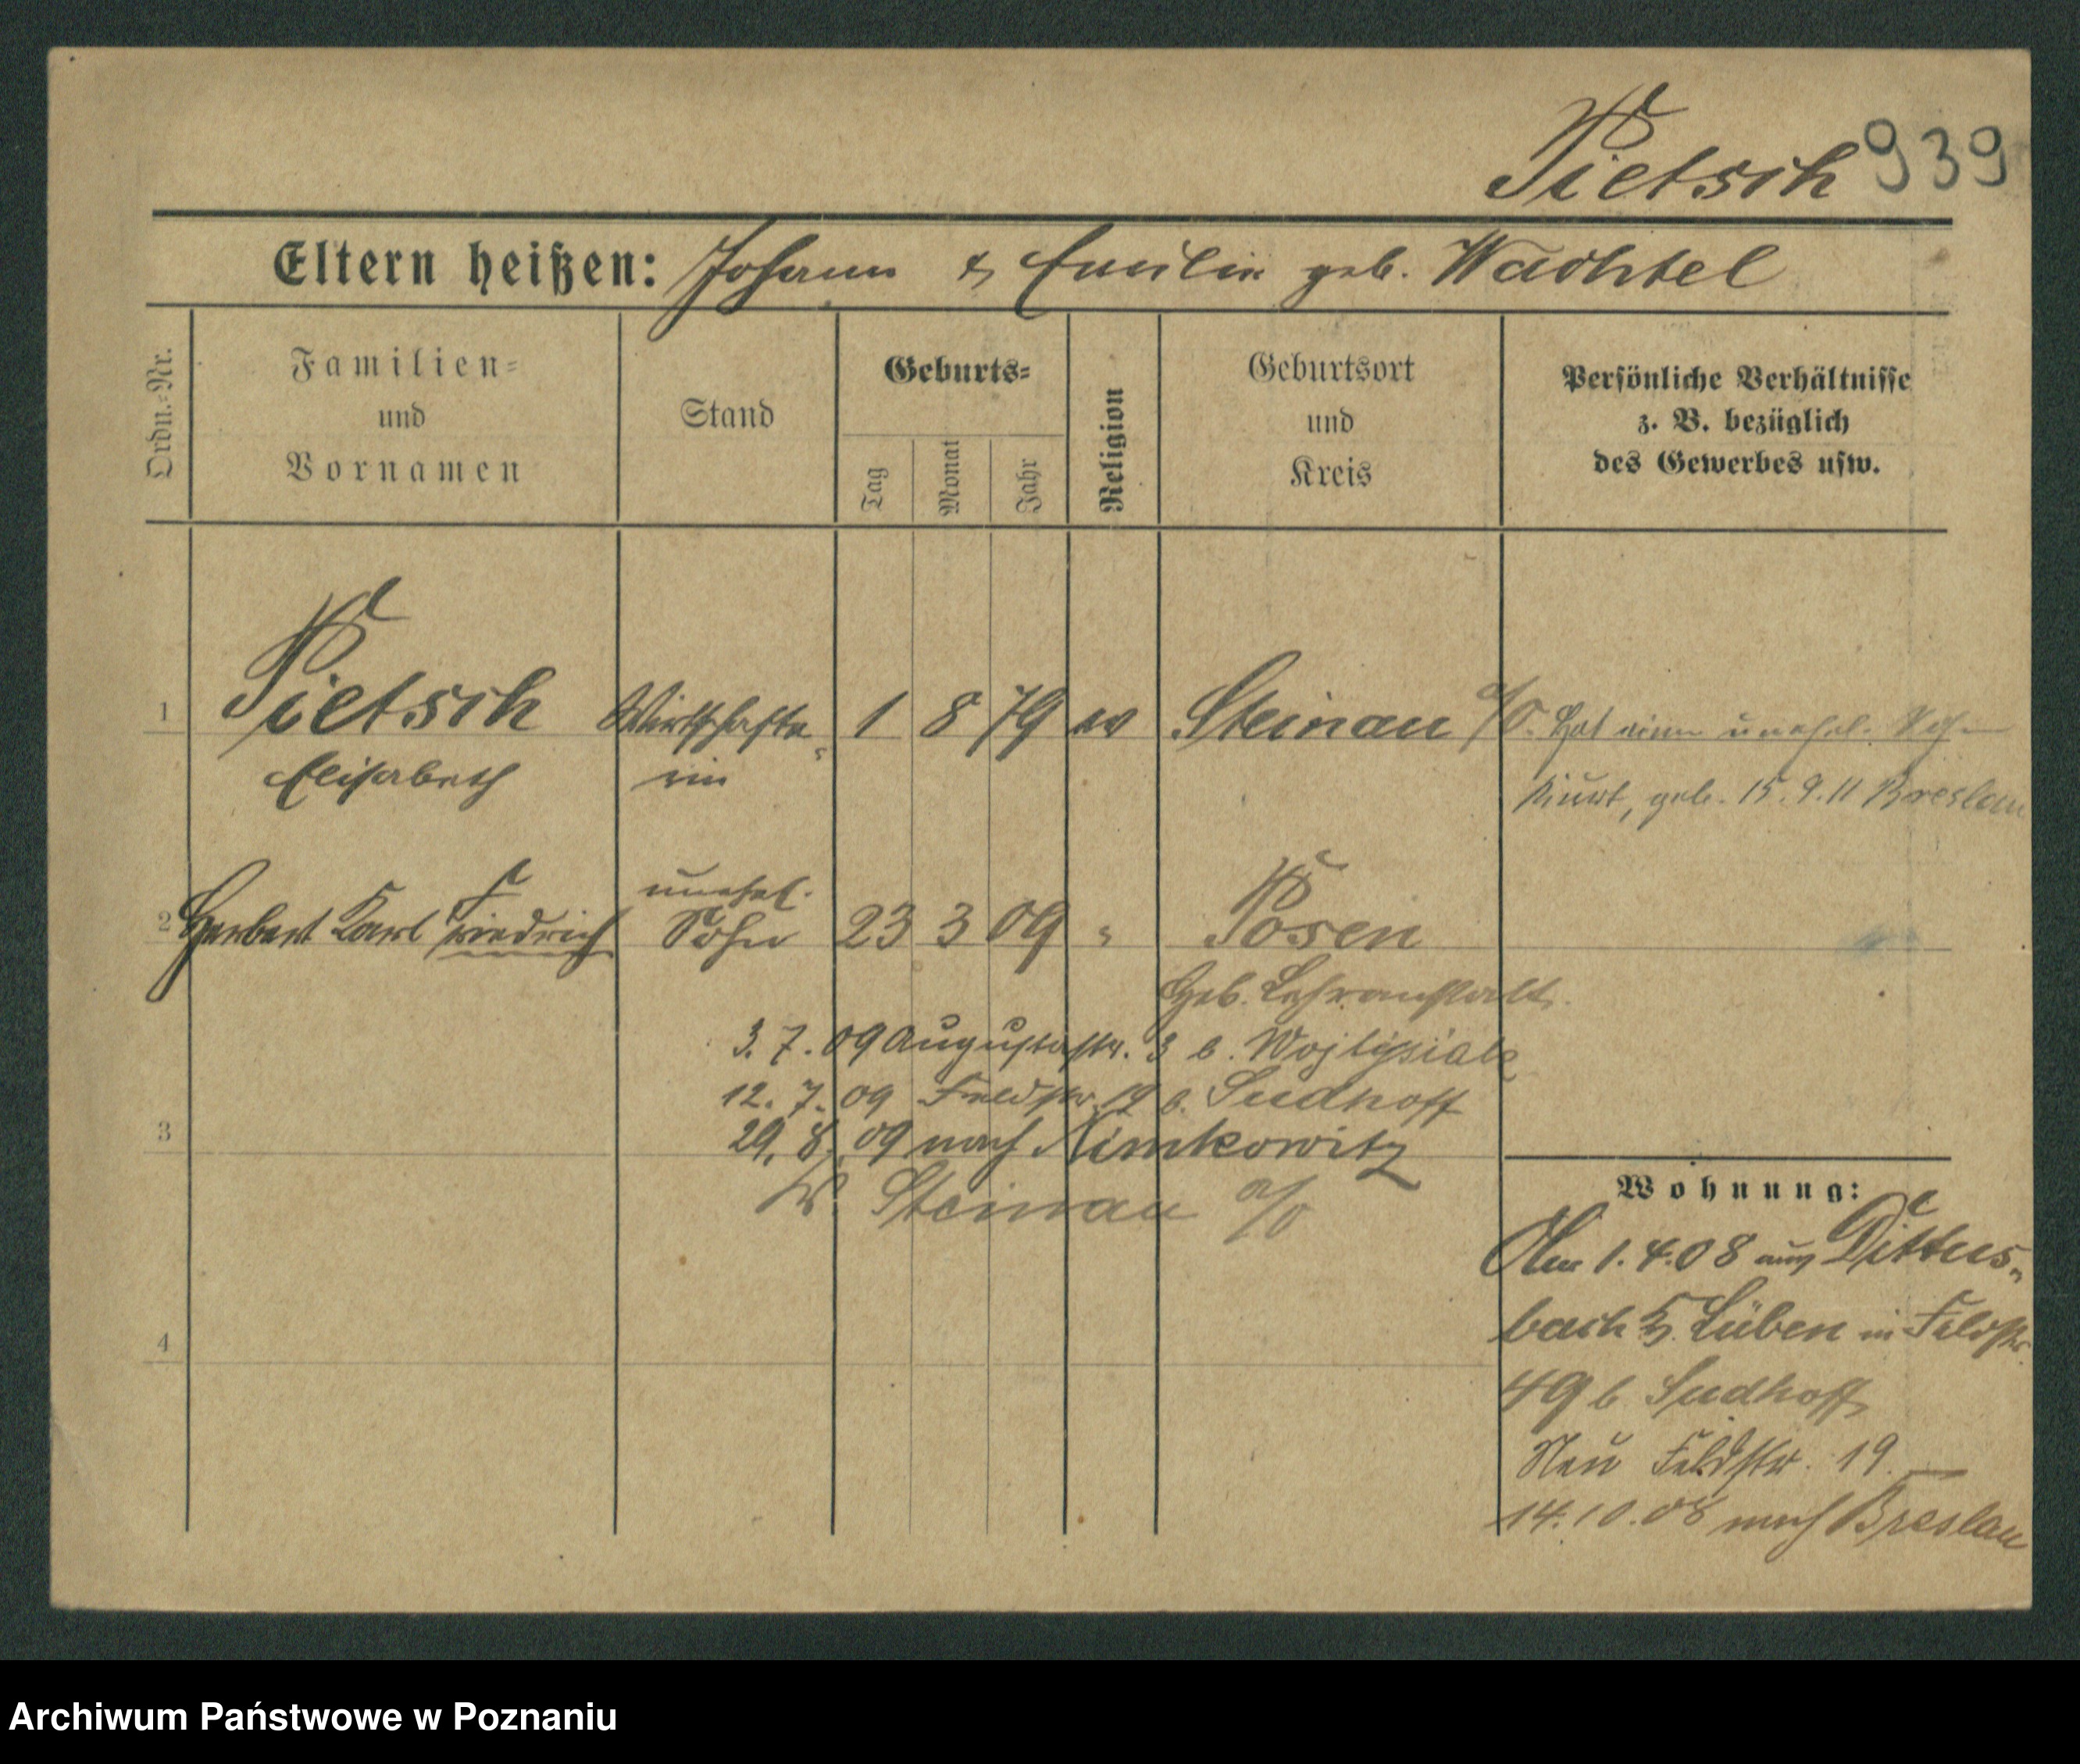 Pietsch 939
Eltern heißen: Johann & Emilie geb. Wachtel
Ordn.-Nr.
Familien-
und
Vornamen
Stand
Geburts-
Tag
Monat
Jahr
Religion
Geburtsort
und
Kreis
Persönliche Verhältnisse
z. B. bezüglich
des Gewerbes usw.
1 Pietsch Wirtschafte- 1 8 79 ev Steinau a/O. Hat einen unehel. Sohn
Elisabeth rin Kurt, geb. 15.9.11 Breslau
unehel.
2 Herbert Karl Friedrich Sohn 23 3 09 " Posen
Heb. Lehranstalt.
3.7.09 Augustastr. 3 b.
12.7.09 Feldstr. 19 b. Sudhoff
29.8.09 nach Nimkowitz
3
Kr. Steinau a/O
4
Wohnung:
Am 1.4.08 aus Ditters-
bach Kr. Lüben in Feldstr.
49 b Sudhoff
Neu Feldstr. 19.
14.10.08 nach Breslau
Archiwum Państwowe w Poznaniu